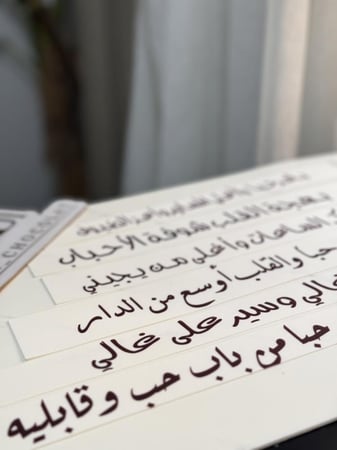 بهجة القلب شوفة الأحباب
الساعات وأغلى من يجيني
حبا والقلب أوسع من الدار
الي وسير على غالي
جبا من باب حب وقابليه
CHOCOLAT